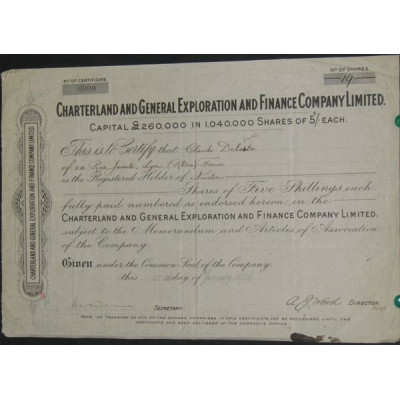 Nº OF CERTIFICATE
Nº OF SHARES
-19-
CHARTERLAND AND GENERAL EXPLORATION AND FINANCE COMPANY LIMITED.
CAPITAL £260,000 IN 1,040,000 SHARES OF 5/- EACH.
This is to Certify that Claude
of Rue Lyon (Rhône) France
is the Registered Holder of Nineteen
Shares of Five Shillings each
fully paid numbered as endorsed hereon in the
CHARTERLAND AND GENERAL EXPLORATION AND FINANCE COMPANY LIMITED.
subject to the Memorandum and Articles of Association
of the Company.
Given under the Common Seal of the Company,
this day of January
SECRETARY
DIRECTOR
NOTE, NO TRANSFER OF ANY OF THE SHARES COMPRISED IN THIS CERTIFICATE CAN BE REGISTERED UNTIL THE
CERTIFICATE HAS BEEN DELIVERED AT THE COMPANY'S OFFICE.
CHARTERLAND AND GENERAL EXPLORATION AND FINANCE COMPANY LIMITED.